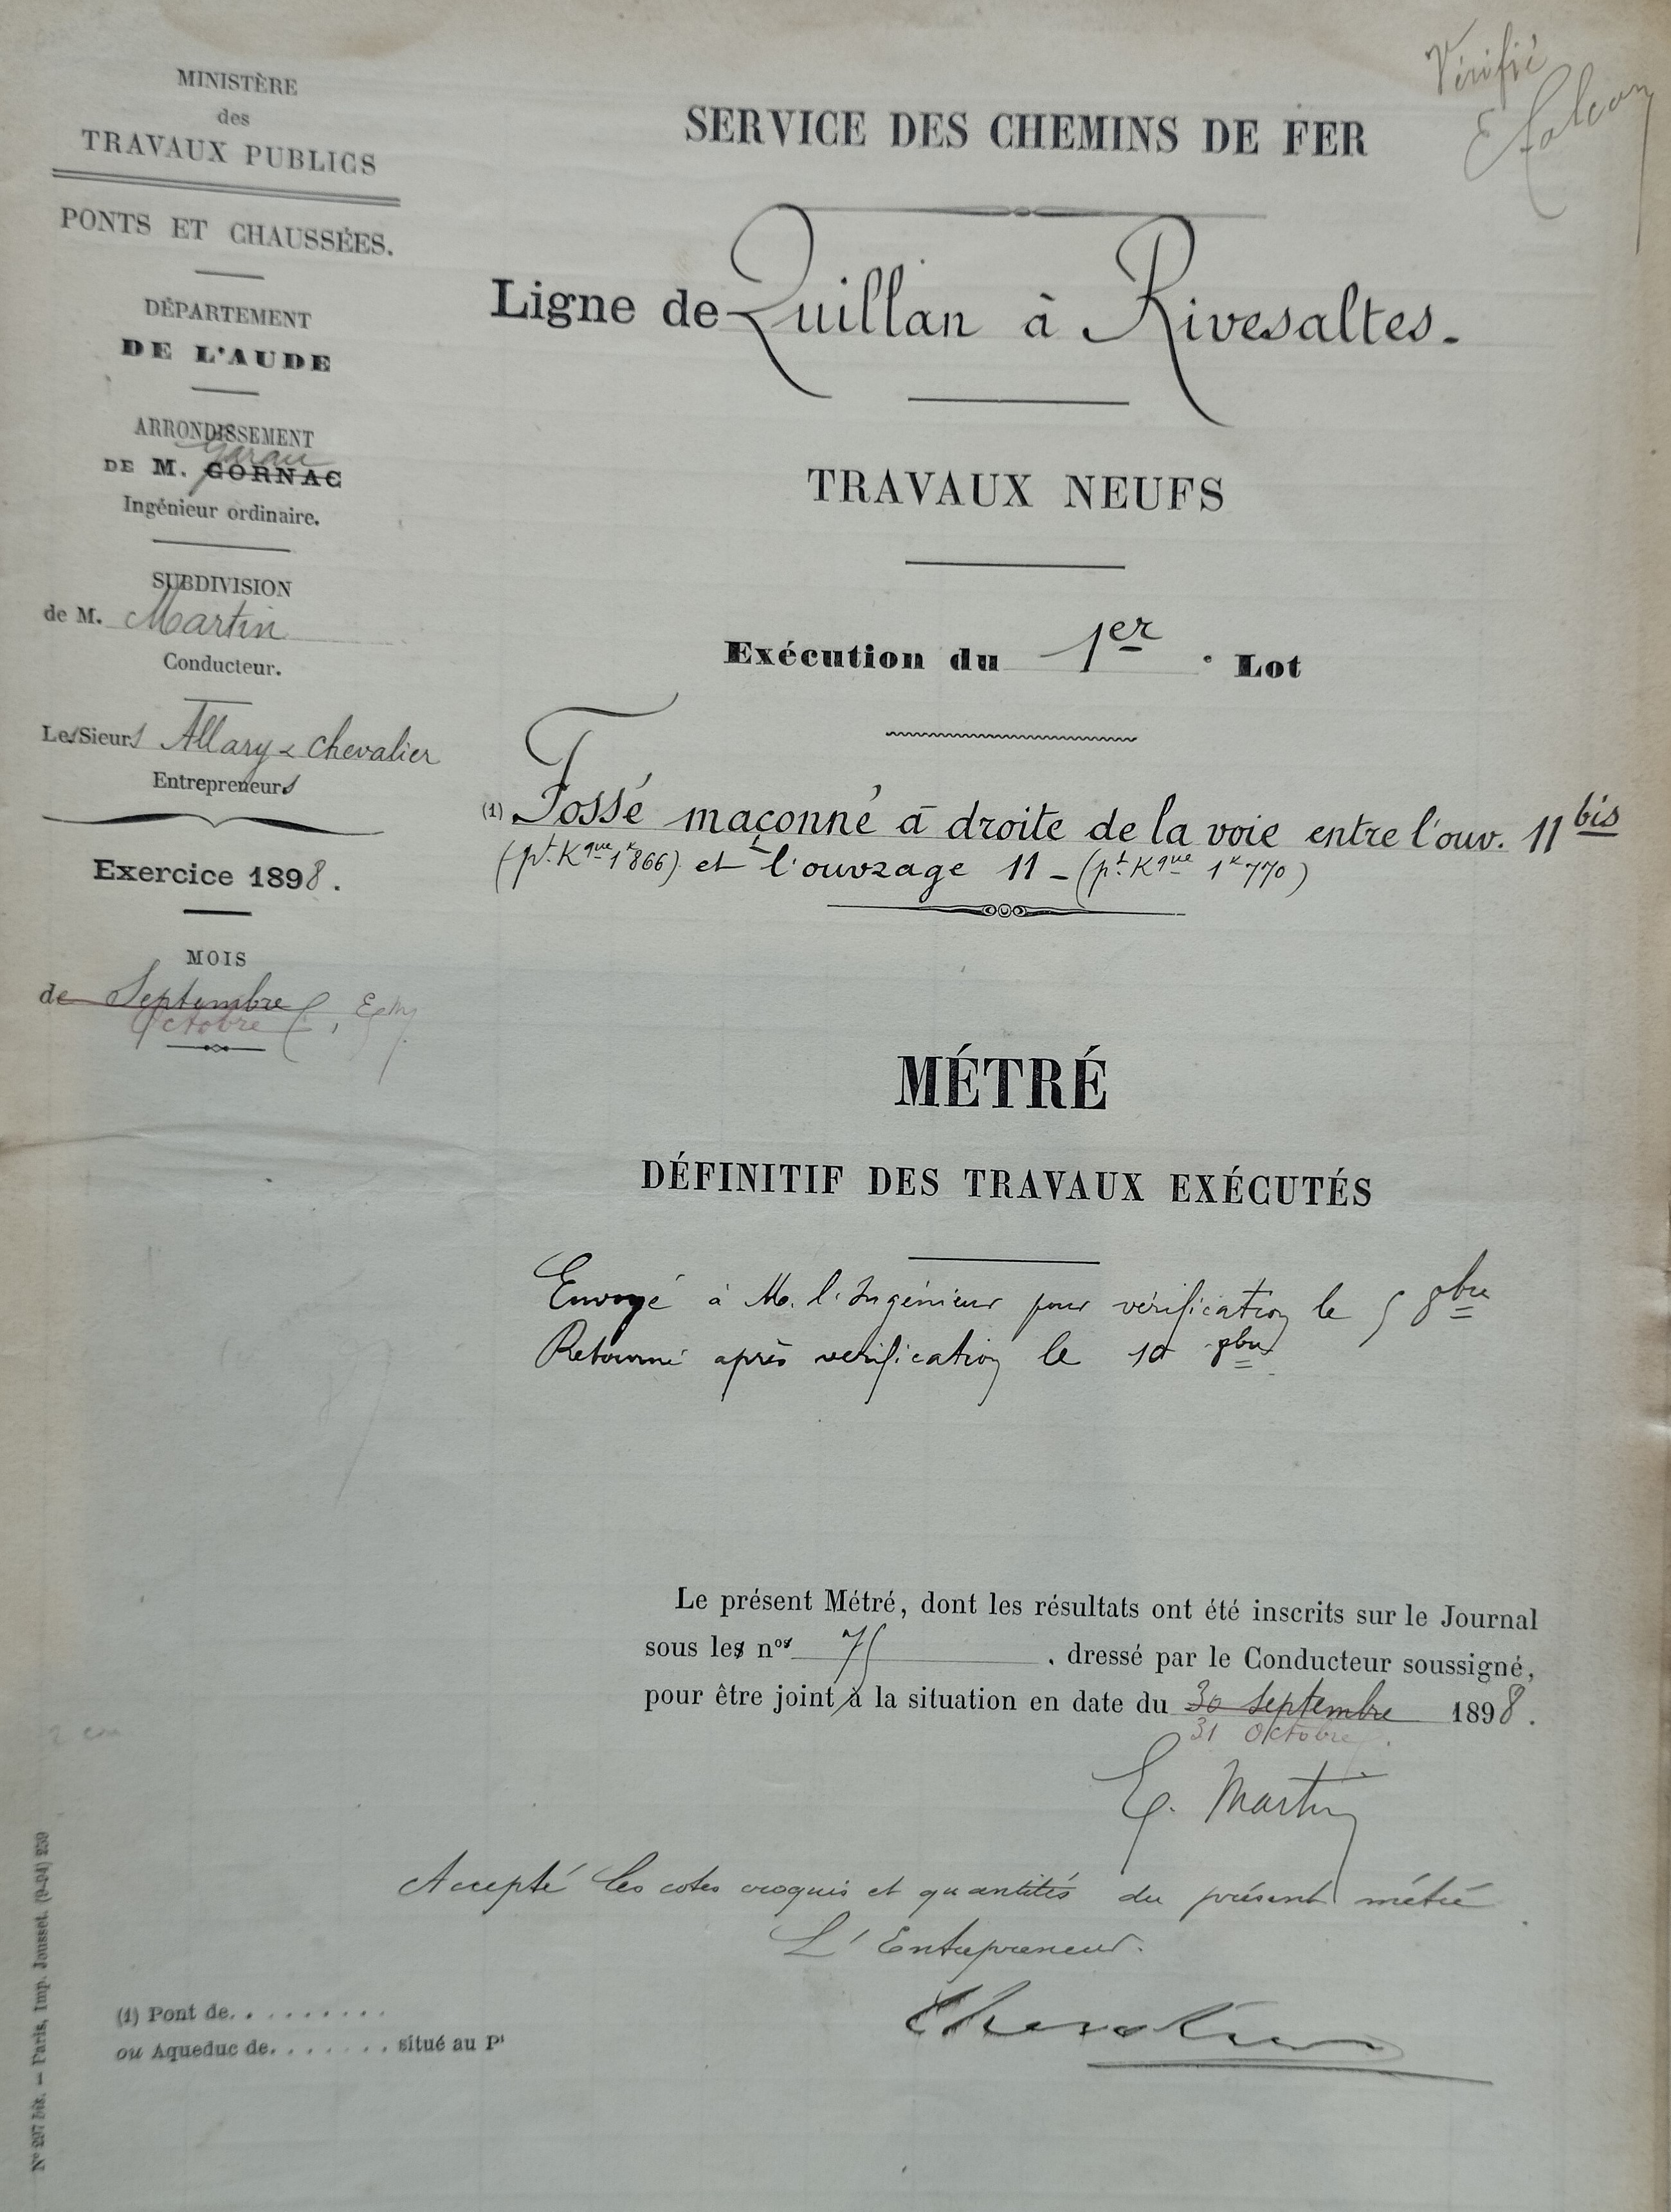 MINISTÈRE
des
TRAVAUX PUBLICS
PONTS ET CHAUSSÉES.
DÉPARTEMENT
DE L'AUDE
ARRONDISSEMENT
DE M. GORNAC
Ingénieur ordinaire.
SUBDIVISION
de M. Martin
Conducteur.
Les Sieurs Allary & Chevalier
Entrepreneurs
Exercice 1898.
MOIS
de Septembre
Octobre
Vérifié
SERVICE DES CHEMINS DE FER
Ligne de Quillan à Rivesaltes.
TRAVAUX NEUFS
Exécution du 1er Lot
(1) Fossé maçonné à droite de la voie entre l'ouv. 11 bis
(pt. Kque 1k866) et l'ouvrage 11 - (pt. Kque 1k770)
MÉTRÉ
DÉFINITIF DES TRAVAUX EXÉCUTÉS
Envoyé à M. l'Ingénieur pour vérification le 5 8bre
Retourné après vérification le 10 8bre
Le présent Métré, dont les résultats ont été inscrits sur le Journal
sous les nos 75 . dressé par le Conducteur soussigné,
pour être joint à la situation en date du 30 septembre 1898.
31 Octobre
E. Martin
Accepté les cotes croquis et quantités du présent métré
L'Entrepreneur.
Chevalier
(1) Pont de. . . . . . . . .
ou Aqueduc de. . . . . . . situé au Pt
N° 297 bis. — Paris, Imp. Jousset. (9-94) 259